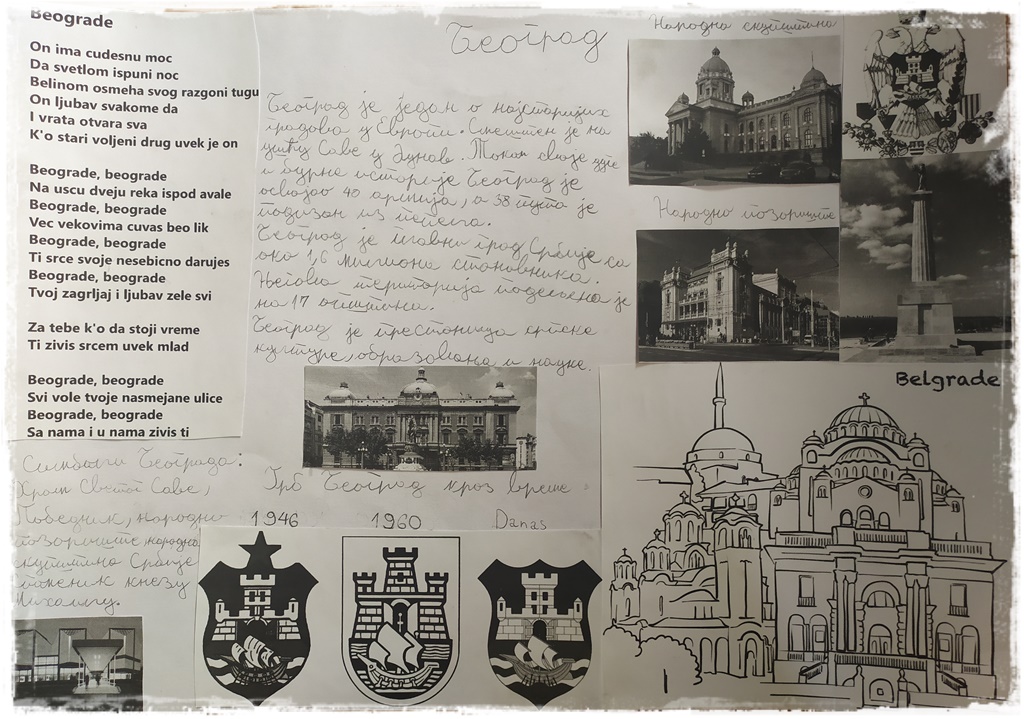 Beograde
On ima cudesnu moc
Da svetlom ispuni noc
Belinom osmeha svog razgoni tugu
On ljubav svakome da
I vrata otvara sva
K'o stari voljeni drug uvek je on
Beograde, beograde
Na uscu dveju reka ispod avale
Beograde, beograde
Vec vekovima cuvas beo lik
Beograde, beograde
Ti srce svoje nesebicno darujes
Beograde, beograde
Tvoj zagrljaj i ljubav zele svi
Za tebe k'o da stoji vreme
Ti zivis srcem uvek mlad
Beograde, beograde
Svi vole tvoje nasmejane ulice
Beograde, beograde
Sa nama i u nama zivis ti
Београд
Београд је један о најстаријих
градова у Европи. Смештен је на
ушћу Саве у Дунав. Током своје дуге
и бурне историје Београд је
освајао 40 армија, а 38 пута је
подизан из пепела.
Београд је главни град Србије са
око 1,6 милиона становника.
Његова територија подељена је
на 17 општина.
Београд је престоница српске
културе, образовања и науке.
Народна скупштина
Народно позориште
Симболи Београда:
Храм Светог Саве,
Победник, народно
позориште, народна
скупштина Србије
споменик кнезу
Михаилу.
Грб Београд кроз време
1946
1960
Danas
Belgrade